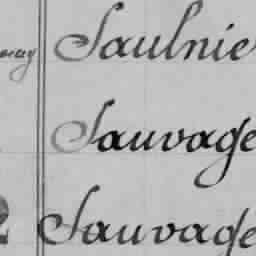 Saulnie
Sauvage
2 Sauvage